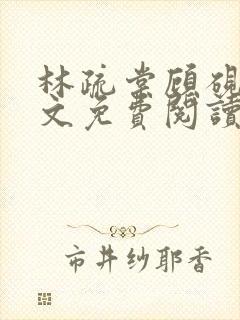 林疏棠顾砚
文免費閱讀
市井纱耶香